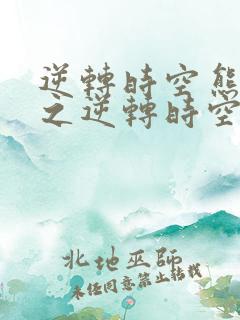 逆轉時空熊
之逆轉時空
北地巫師
未经同意禁止转载